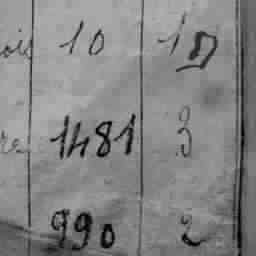 ois 10 10
re 1481 3
990 2